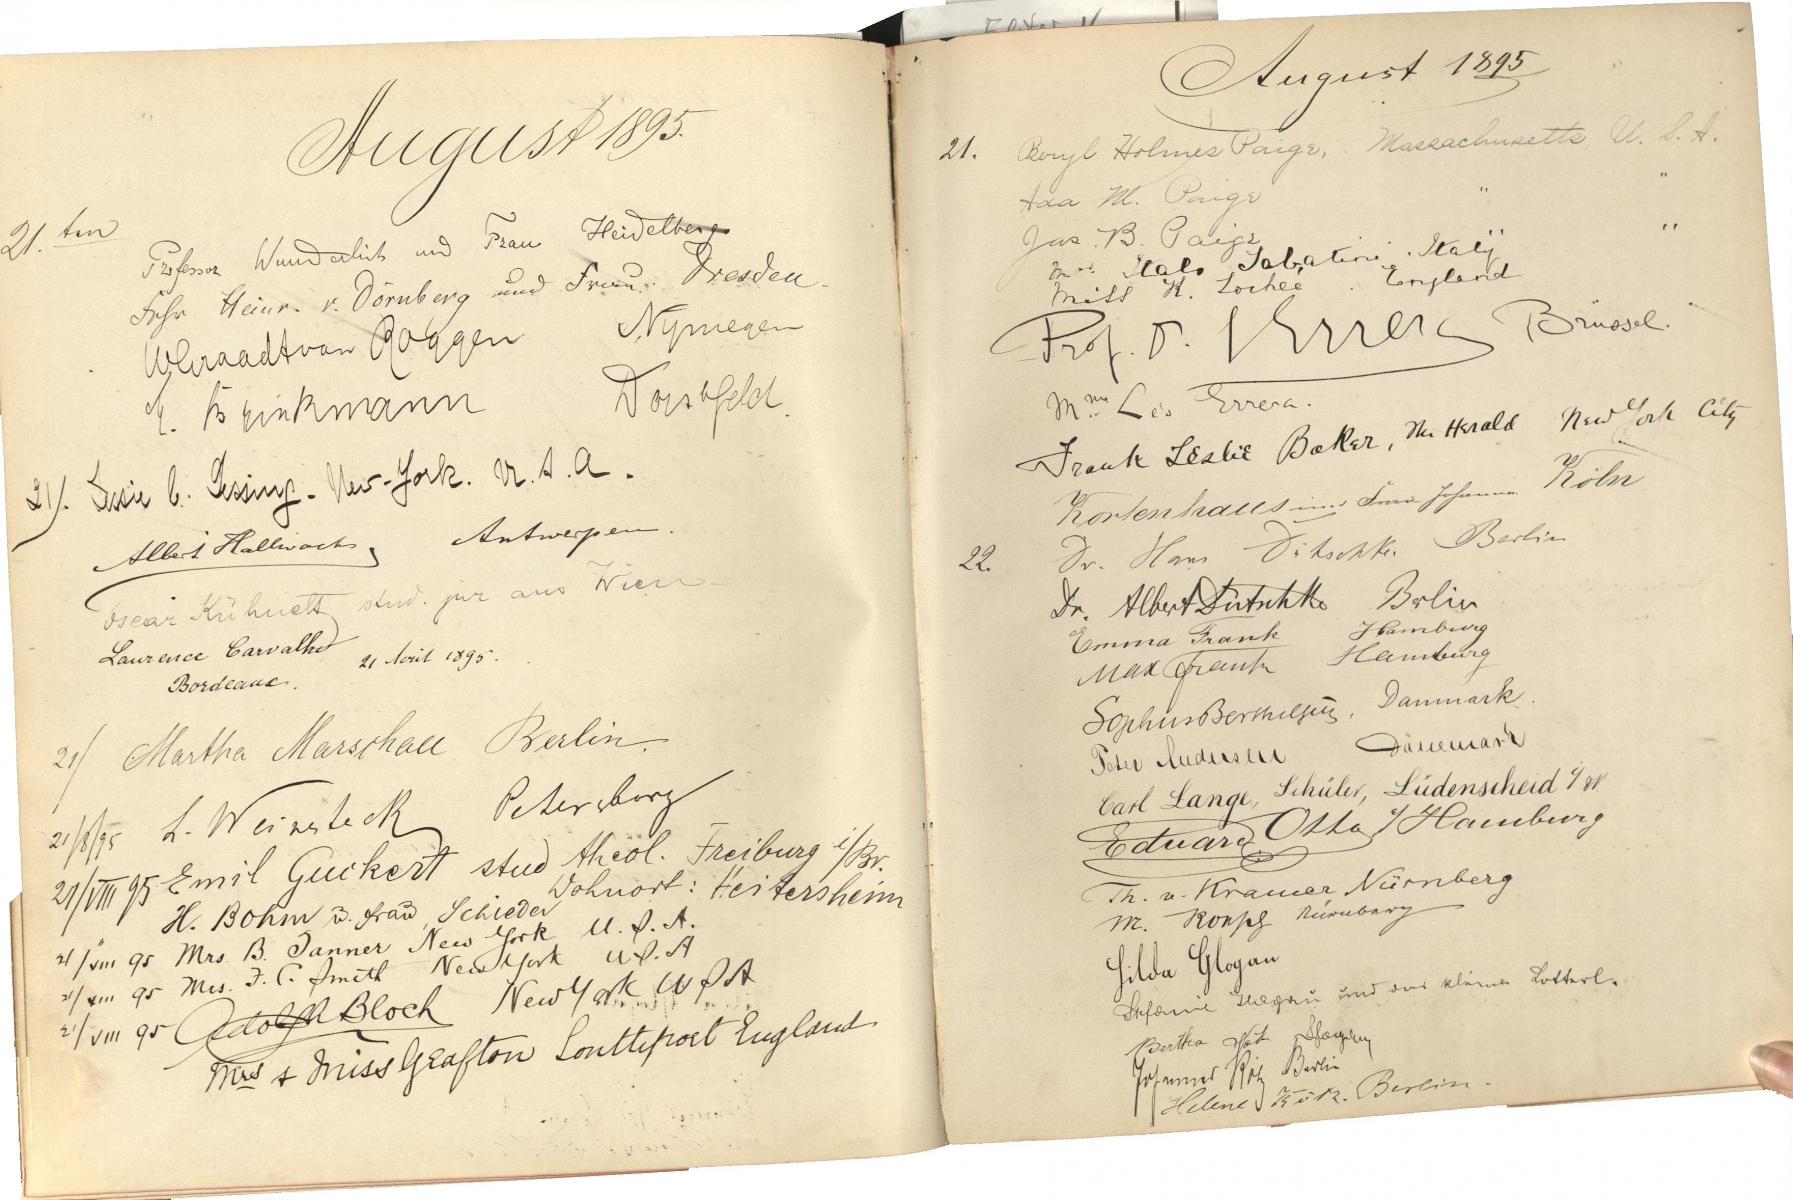 August 1895.
21. ten
Professor Wunderlich und Frau Heidelberg
Frhr Heinr. v. Dörnberg und Frau. Dresden.
van Roggen Nymegen
E. Brinkmann Dorstfeld.
21/. Lessing - New-York. U.S.A.
Albert Hallwachs, Antwerpen.
Oscar Kühnelt stud. jur aus Wien
Laurence Carvalho 21 1895.
Bordeaux.
21/ Martha Marschall Berlin.
21/8/95 L. Weinsteck Petersburg
21/VIII 95 Emil Guckert stud theol. Freiburg i/Br.
Wohnort: Heitersheim
H. Bohm u. frau, Schieder
21/VIII 95 Mrs. B. Tanner New York U.S.A.
21/VIII 95 Mrs. F. C. Smith New York U.S.A
21/VIII 95 Adolph Bloch New York U S A
Mrs & Miss Grafton Southport England
August 1895
21. Beryl Holmes Paige, Massachusetts U.S.A.
Ada M. Paige " "
Jas. B. Paige " "
Italo Sabatini. Italy
Miss K. England
Prof. Dr. L Errera Brüssel.
Mme Léo Errera.
Frank Leslie Baker, The Herald New York City
Kortenhaus und Frau Johanna Köln
22. Dr. Hans Dütschke. Berlin
Dr. Albert Dütschke Berlin
Emma Frank Hamburg
Max Frank Hamburg
Sophus Berthelsen, Danmark.
Peter Andersen Dänemark
Carl Lange, Schüler, Lüdenscheid i/W.
Eduard Otto / Hamburg
Th. v. Kramer Nürnberg
M. Nürnberg
Hilda Glogau
Stefanie Glogau und das kleine Lotterl.
Bertha
Johannes Berlin
Helene Berlin.